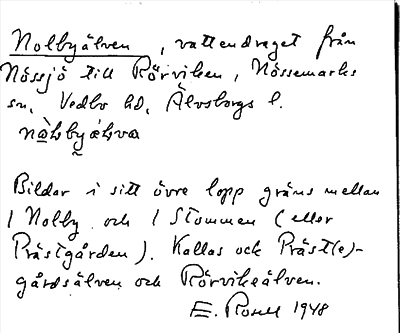 Nolbyälven, vattendraget från
Nössjö till Rörviken, Nössemarks
sn, Vedbo hd, Älvsborgs l.
nòlsbyǽlva
Bildar i sitt övre lopp gräns mellan
1 Nolby och 1 Stommen (eller
Prästgården). Kallas ock Präst(e)-
gårdsälven och Rörviksälven.
E. Rosell 1948